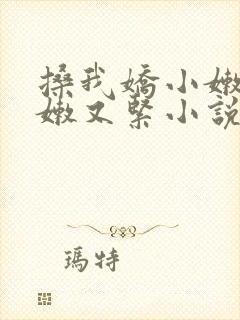 搡我嬌小嫩
嫩又緊小說
瑪特